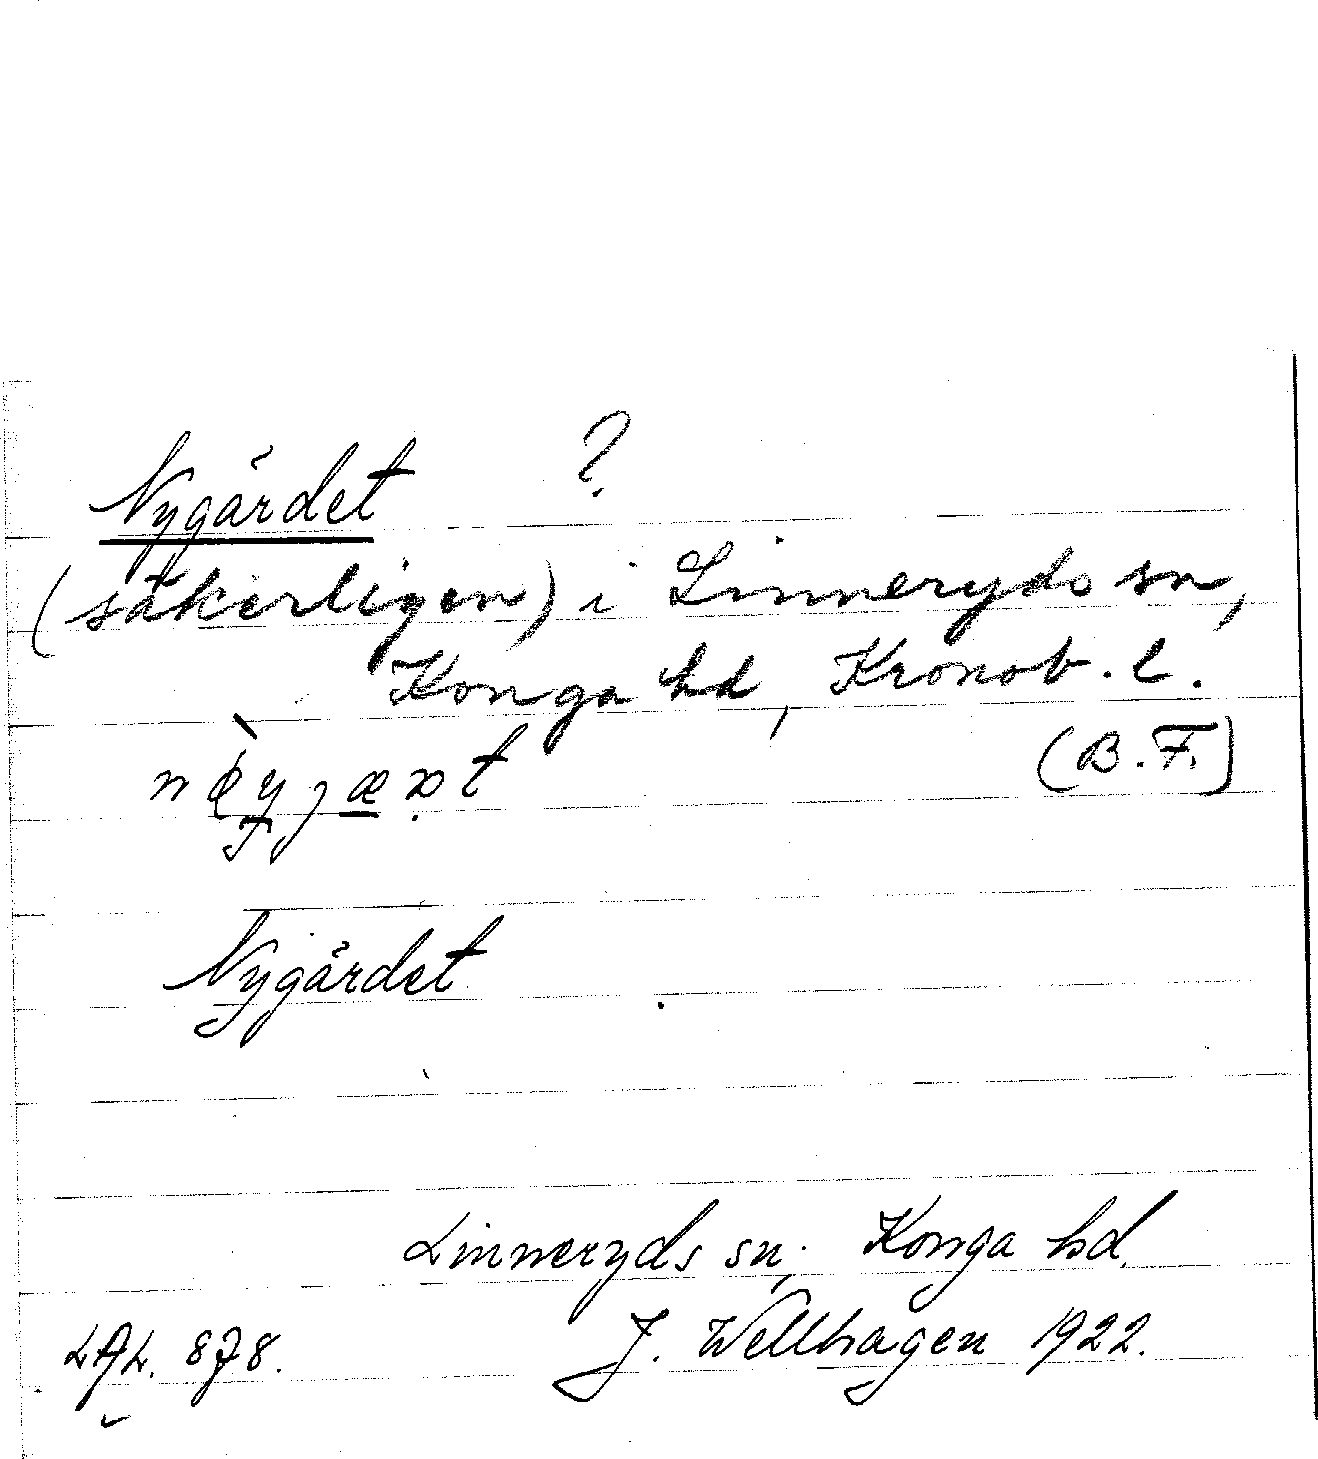 Nygärdet ?
(säkerligen) i Linneryds sn,
Konga hd, Kronob. l.
(B.F.)
Nygärdet
Linneryds sn; Konga hd.
J. Wellhagen 1922.
LAL. 878.